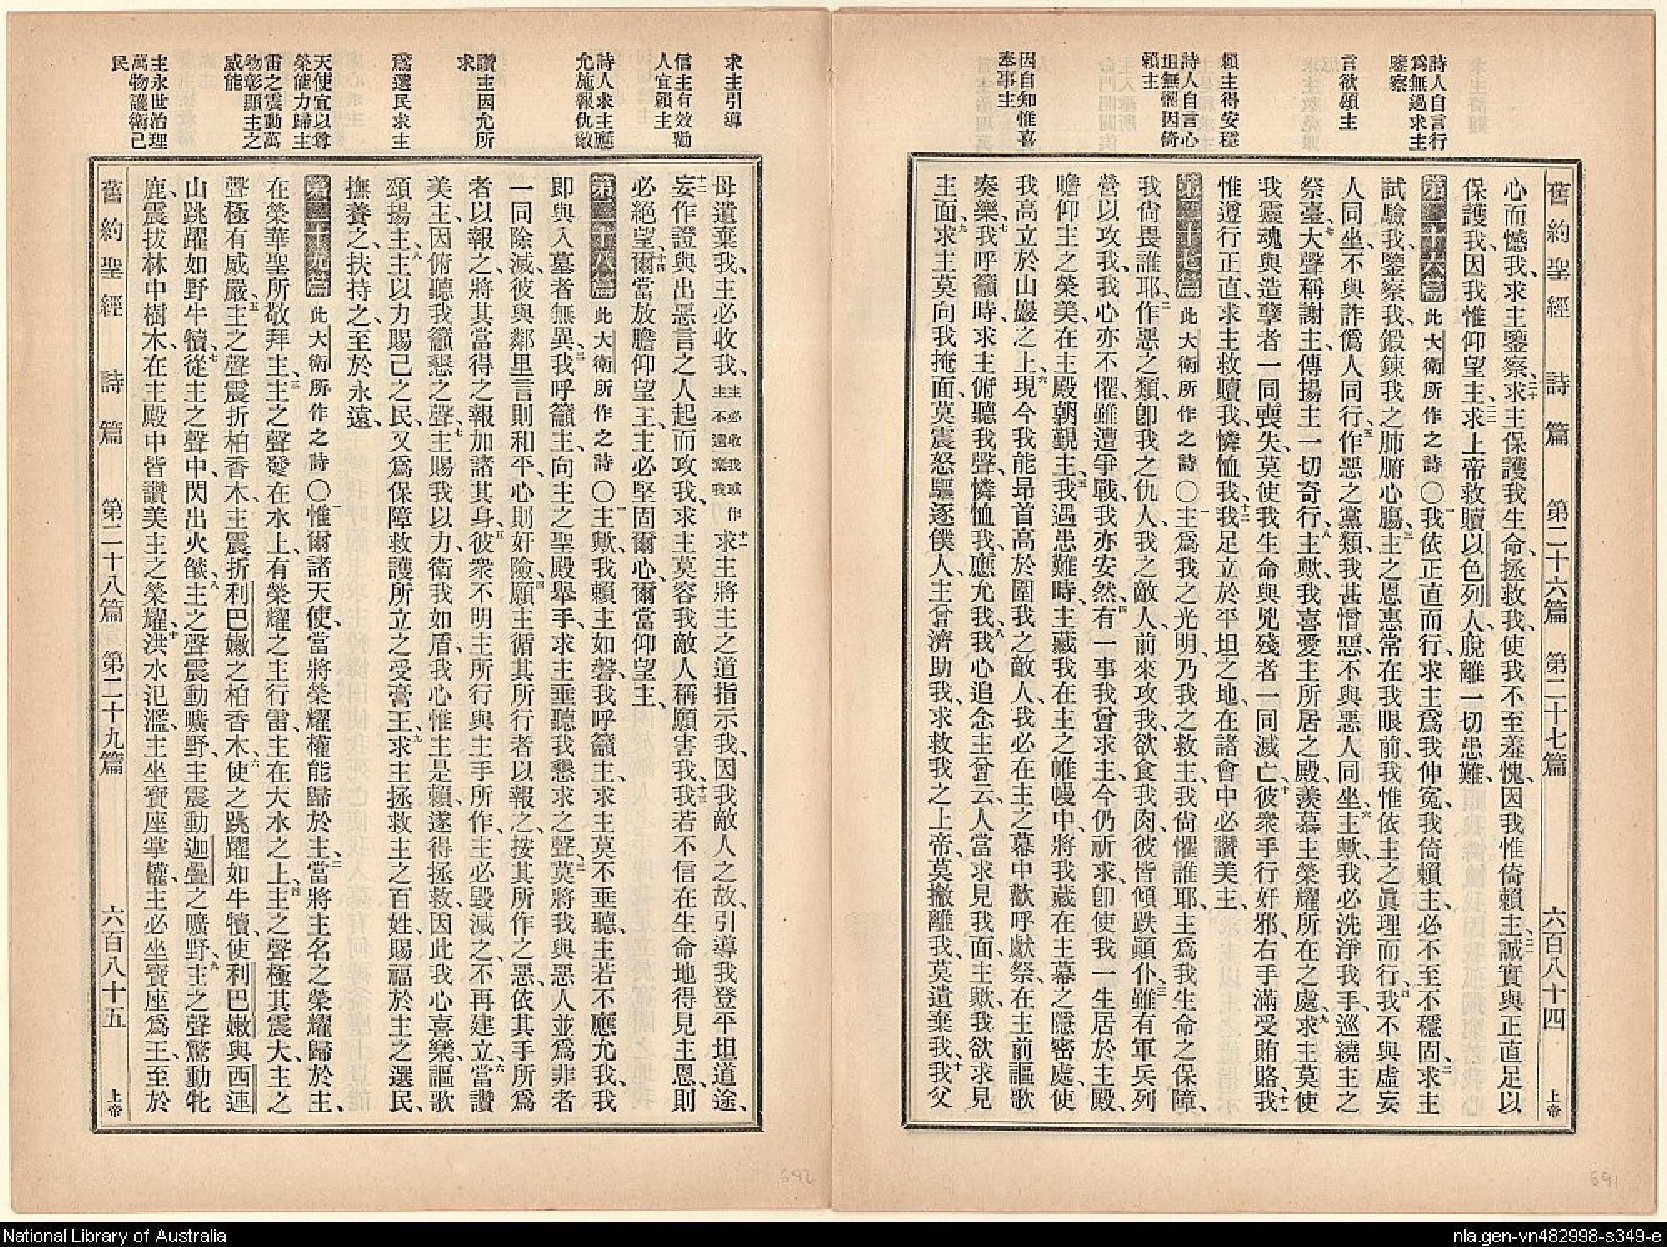 詩人自言行
爲無過求主
鑒察
言欲頌主
賴主得安穩
詩人自言心
坦無懼因倚
賴主
因自知惟喜
奉事主
舊約聖經 詩篇 第二十六篇 第二十七篇 六百八十四 上帝
心而憾我、求主鑒察、二十求主保護我生命、拯救我、使我不至羞愧、因我惟倚賴主、二一誠實與正直足以
保護我、因我惟仰望主、二二求上帝救贖以色列人、脫離一切患難、
第二十六篇 此大衛所作之詩〇一我依正直而行、求主爲我伸冤、我倚賴主、必不至不穩固、二求主
試驗我、鑒察我、鍛鍊我之肺腑心腸、三主之恩惠常在我眼前、我惟依主之眞理而行、四我不與虛妄
人同坐、不與詐僞人同行、五作惡之黨類、我甚憎惡、不與惡人同坐、六主歟、我必洗淨我手、巡繞主之
祭臺、七大聲稱謝主、傳揚主一切奇行、八主歟、我喜愛主所居之殿、羨慕主榮耀所在之處、九求主莫使
我靈魂與造孽者一同喪失、莫使我生命與兇殘者一同滅亡、十彼衆手行奸邪、右手滿受賄賂、十一我
惟遵行正直、求主救贖我、憐恤我、十二我足立於平坦之地、在諸會中必讚美主、
第二十七篇 此大衛所作之詩〇一主爲我之光明、乃我之救主、我尚懼誰耶、主爲我生命之保障、
我尚畏誰耶、二作惡之類、卽我之仇人、我之敵人、前來攻我、欲食我肉、彼皆傾跌顚仆、三雖有軍兵列
營以攻我、我心亦不懼、雖遭爭戰、我亦安然、四有一事我曾求主、今仍祈求、卽使我一生居於主殿、
瞻仰主之榮美、在主殿朝覲主、五我遇患難時、主藏我在主之帷幔中、將我藏在主幕之隱密處、使
我高立於山巖之上、六現今我能昂首高於圍我之敵人、我必在主之幕中歡呼獻祭、在主前謳歌
奏樂、七我呼籲時、求主俯聽我聲、憐恤我、應允我、八我心追念主曾云、人當求見我面、主歟、我欲求見
主面、九求主莫向我掩面、莫震怒驅逐僕人、主曾濟助我、求救我之上帝、莫撇離我、莫遺棄我、十我父
求主引導
信主有效勸
人宜賴主
詩人求主應
允施報仇敵
讚主因允所
求
爲選民求主
天使宜以尊
榮能力歸主
雷之震動萬
物彰顯主之
威能
主永世治理
萬物護衛己
民
母遺棄我、主必收我、主必收我或作主不遺棄我 十一求主將主之道指示我、因我敵人之故、引導我登平坦道途、
十二妄作證與出惡言之人起而攻我、求主莫容我敵人稱願害我、十三我若不信在生命地得見主恩、則
必絕望、十四爾當放膽仰望主、主必堅固爾心、爾當仰望主、
第二十八篇 此大衛所作之詩〇一主歟、我賴主如磐、我呼籲主、求主莫不垂聽、主若不應允我、我
卽與入墓者無異、二我呼籲主、向主之聖殿舉手、求主垂聽我懇求之聲、三莫將我與惡人並爲非者
一同除滅、彼與鄰里言則和平、心則奸險、四願主循其所行者以報之、按其所作之惡、依其手所爲
者以報之、將其當得之報加諸其身、五彼衆不明主所行與主手所作、主必毀滅之、不再建立、六當讚
美主、因俯聽我籲懇之聲、七主賜我以力、衛我如盾、我心惟主是賴、遂得拯救、因此我心喜樂、謳歌
頌揚主、八主以力賜己之民、又爲保障救護所立之受膏王、九求主拯救主之百姓、賜福於主之選民、
撫養之、扶持之、至於永遠、
第二十九篇 此大衛所作之詩〇一惟爾諸天使、當將榮耀權能歸於主、二當將主名之榮耀歸於主、
在榮華聖所敬拜主、三主之聲發在水上、有榮耀之主行雷、主在大水之上、四主之聲極其震大、主之
聲極有威嚴、五主之聲震折柏香木、主震折利巴嫩之柏香木、六使之跳躍如牛犢、使利巴嫩與西連
山跳躍如野牛犢、七從主之聲中、閃出火燄、八主之聲震動曠野、主震動迦疊之曠野、九主之聲驚動牝
鹿、震拔林中樹木、在主殿中皆讚美主之榮耀、十洪水氾濫、主坐寶座掌權、主必坐寶座爲王、至於
舊約聖經 詩篇 第二十八篇 第二十九篇 六百八十五 上帝
691
692
National Library of Australia
nla.gen-vn482998-s349-e